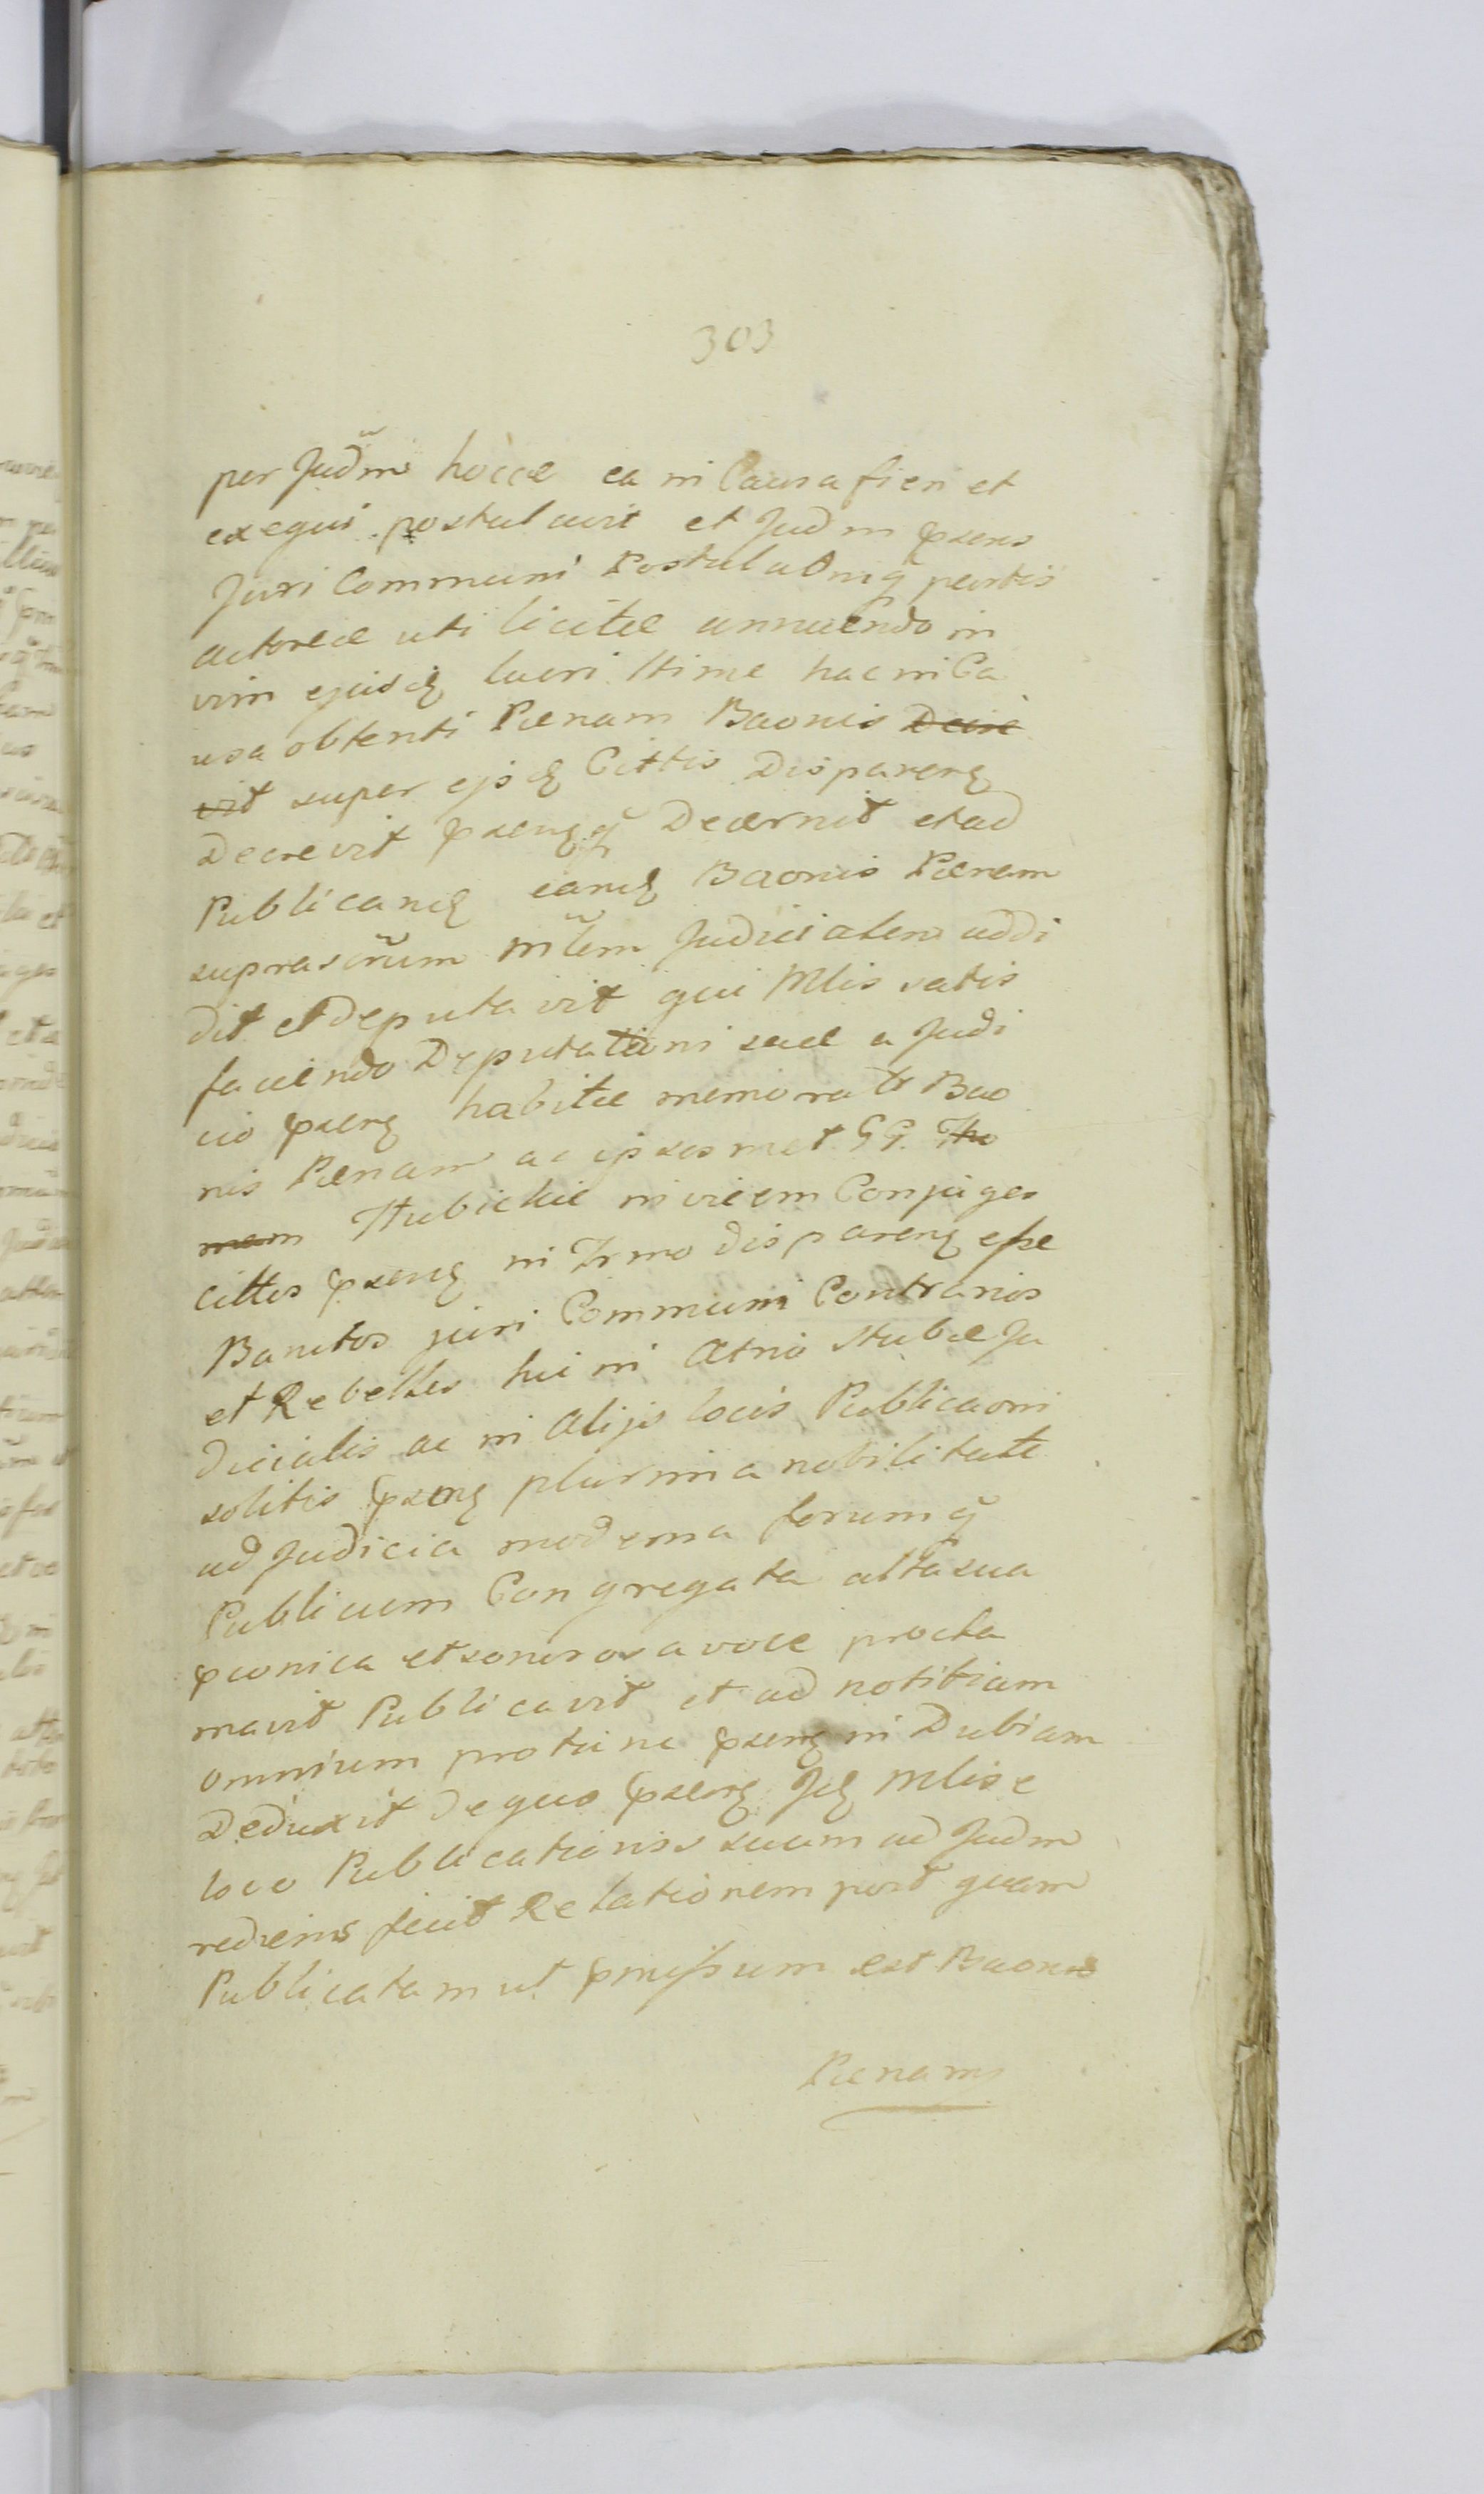 303
per Judm hocce ea in Causa fieri et
exequi postulavit et Judm pxens
Juri Communi Postulatniq partis
actoreae uti licitae annuendo in
vim ejusd lucri Itime hac in Ca
usa obtenti Paenam Baonis Decre
vit super ejsd Cittis Disparen
Decrevit pxen Decernit et ad
Publicand eand Baonis Paenam
suprascrum Mlem Judicialem addi
dit et Deputavit qui Mlis satis
faciendo Deputationi suae a Judi
cio pxen habitae memorat Bao
nis Paenam ac ipsosmet GG. Tho
mam Hubickie invicem Conjuges
cittos pxen in Trmo disparen esse
Banitos juri Communi Contrarios
et Rebelles hic in Atrio Stubae Ju
dicialis ac in Alijs locis Publicaoni
solitis pxen plurima nobilitate
ad Judicia moderna forumq
Publicum Congregata alta sua
pconica et sonorosa voce procla
mavit Publicavit et ad notitiam
omnium protunc pxen in Dubiam
Deduxit de quo pxen Jd Mlis e
loco Publicationis suam ad Judm
rediens fecit Relationem post quam
Publicatam ut pmissum est Baonis
Paenam